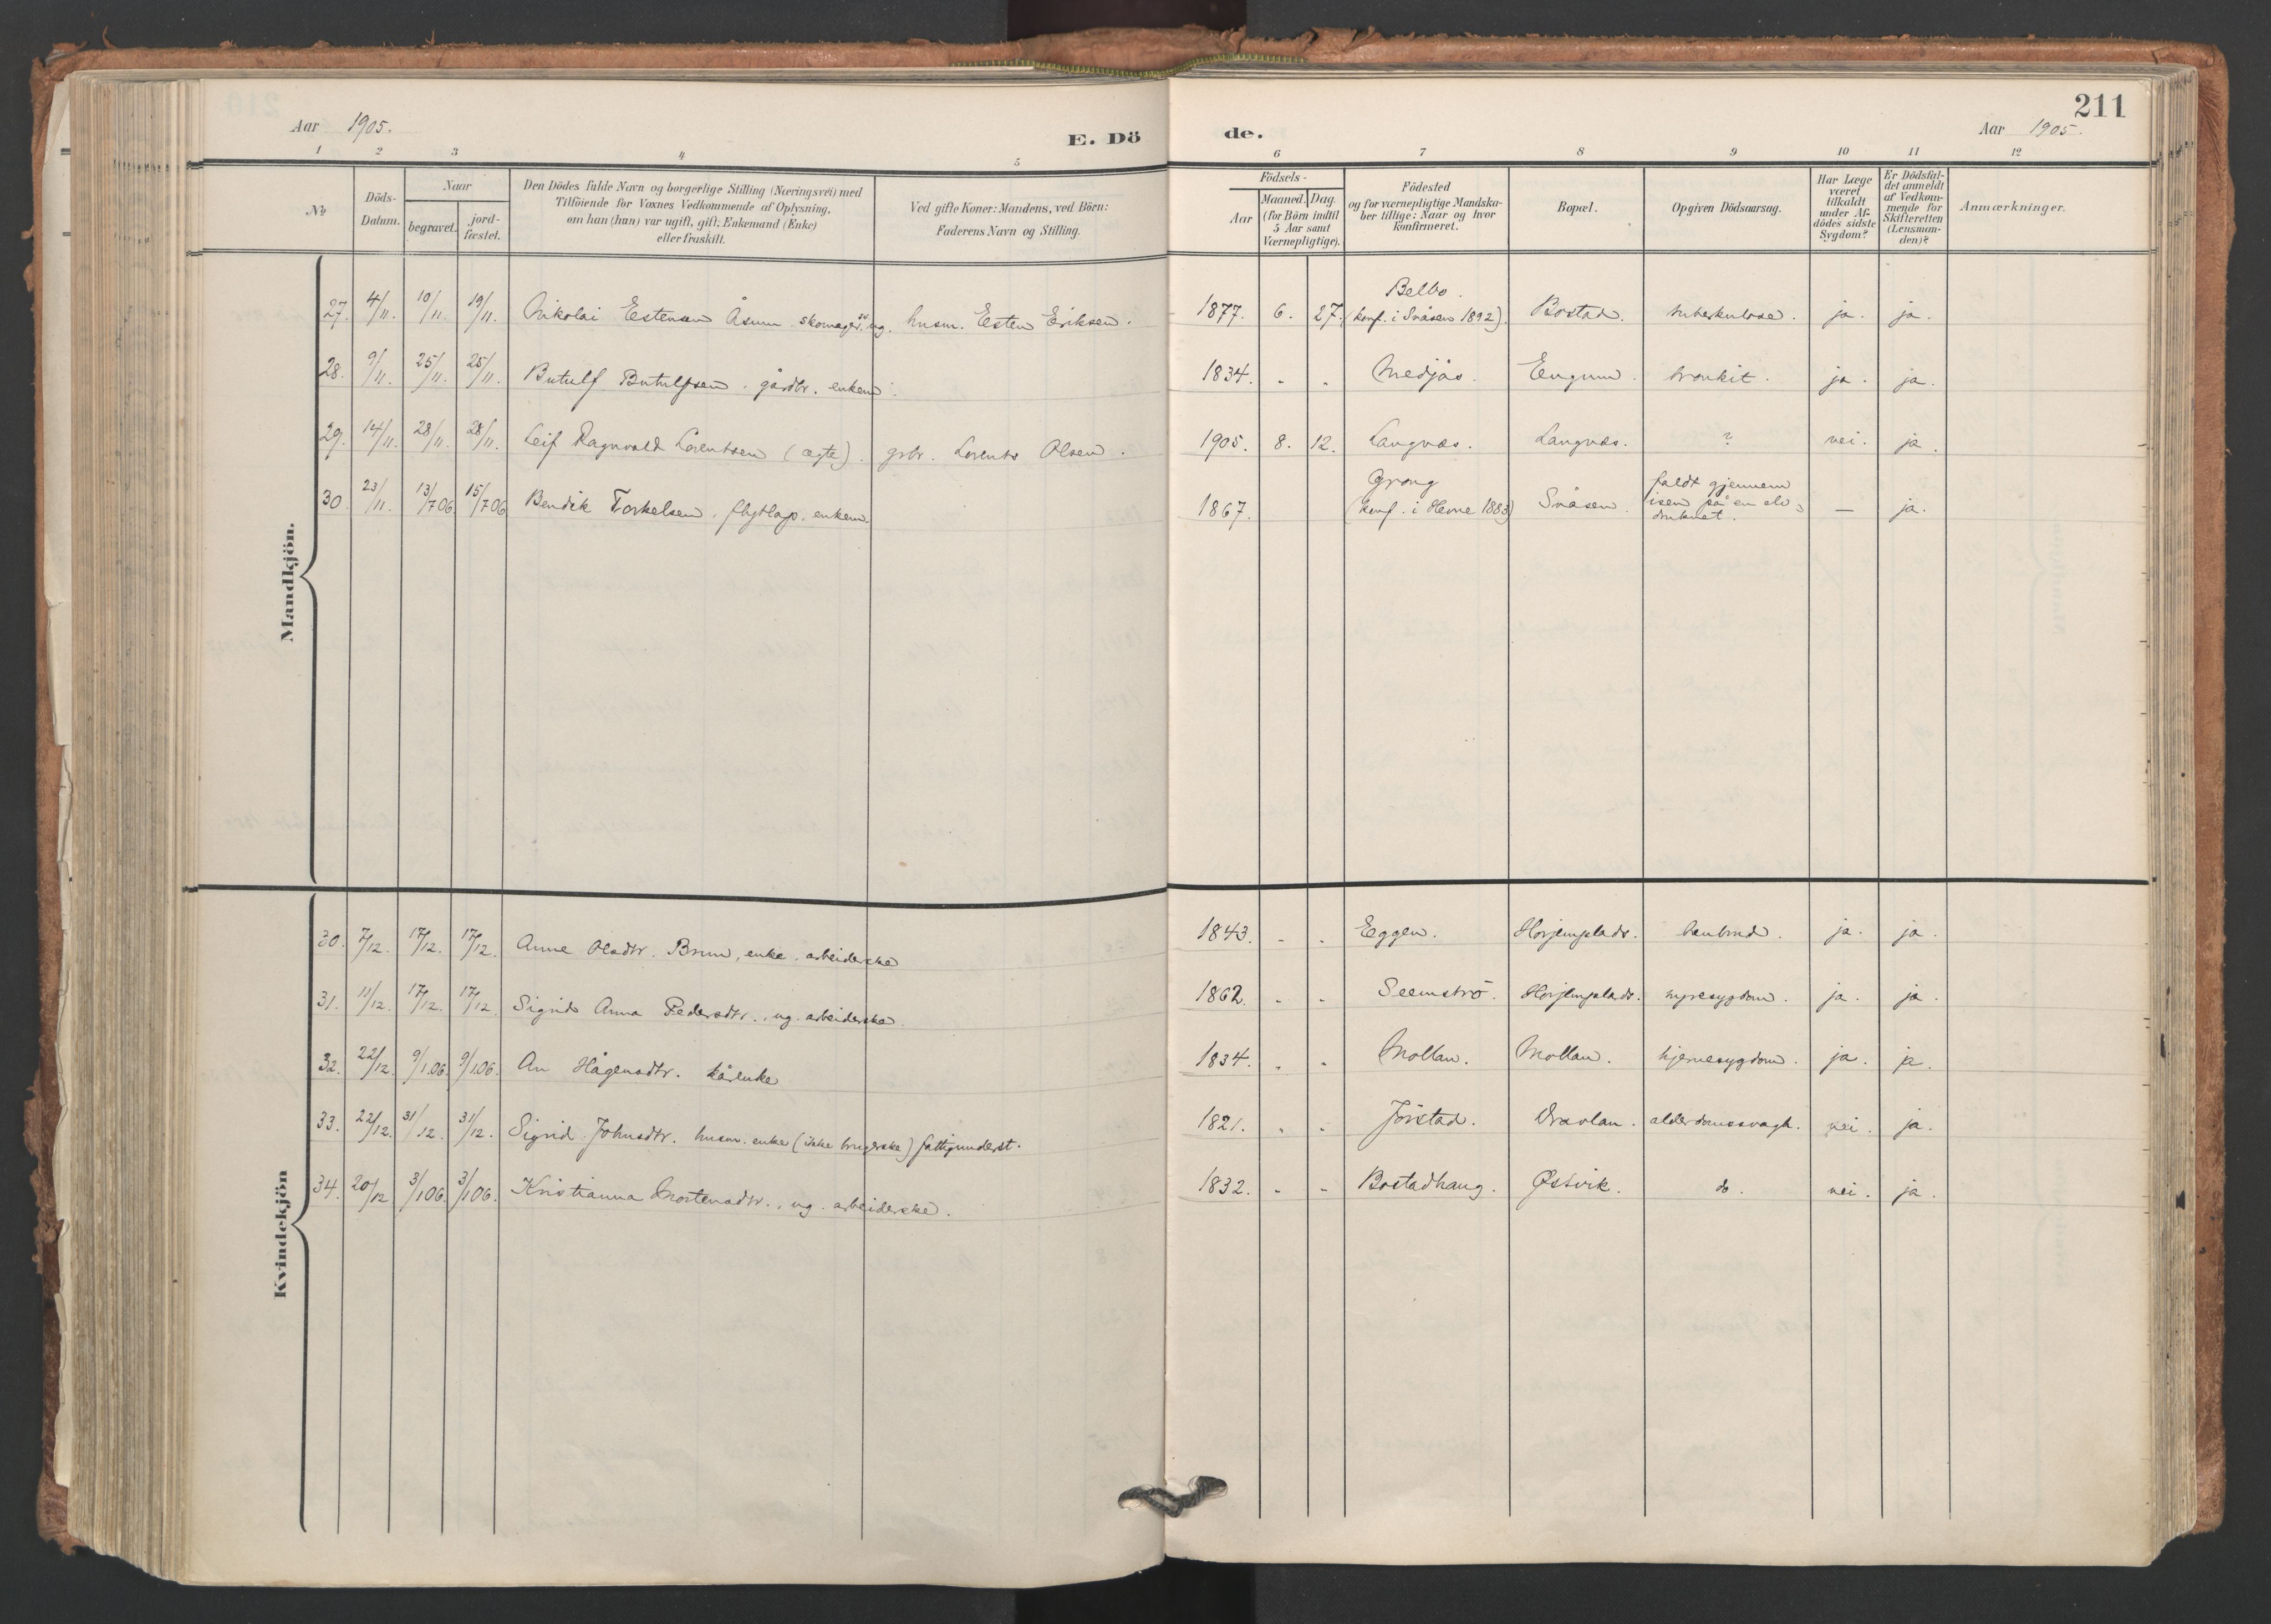 211
Aar 1905.
E. Dö de.
Aar 1905.
1 2 3 4 5 6 7 8 9 10 11 12
No
Döds-Datum.
Naar
begravet.
jord-fæstet.
Den Dödes fulde Navn og borgerlige Stilling (Næringsvei) med
Tilföiende for Voxnes Vedkommende af Oplysning,
om han (hun) var ugift, gift, Enkemand (Enke)
eller fraskilt.
Ved gifte Koner: Mandens, ved Börn:
Faderens Navn og Stilling.
Födsels-
Aar
Maaned. Dag.
(for Börn indtil
5 Aar samt
Værnepligtige).
Födested
og for værnepligtige Mandska-
ber tillige: Naar og hvor
konfirmeret.
Bopæl.
Opgiven Dödsaarsag.
Har Læge
været
tilkaldt
under Af-
dödes sidste
Sygdom?
Er Dödsfal-
det anmeldt
af Vedkom-
mende for
Skifteretten
(Lensman-
den)?
Anmærkninger.
Mandkjön.
27. 4/11. 10/11. 19/11. Nikolai Estensen Åsum skomager ug. husm. Esten Eriksen. 1877. 6. 27. Belbo. (konf. i Snåsen 1892). Bostad. tuberkulose. ja. ja.
28. 9/11. 25/11. 25/11. Botulf Botulfsen. gårdbr. enkem. 1834. " " Medjås. Engum. bronkit. ja. ja.
29. 14/11. 28/11. 28/11. Leif Ragnvald Lorentsen (ægte). grbr. Lorents Olsen. 1905. 8. 12. Langnæs. Langnæs. ? nei. ja.
30. 23/11. 13/7 06. 15/7 06. Bendik Torkelsen. flytlap. enkem. 1867. Grong (konf. i Hevne 1883) Snåsen. faldt gjennem
isen på en elv;
druknet. — ja.
Kvindekjön
30. 7/12. 17/12. 17/12. Anne Olsdtr. Brun, enke. arbeiderske 1843. " " Eggen. Horjemplads. benbrud. ja. ja.
31. 11/12. 17/12. 17/12. Sigrid Anna Pedersdtr., ug. arbeiderske. 1862. " " Seemstrø. Horjemplads. nyresygdom. ja. ja.
32. 22/12. 9/1.06. 9/1.06. An Hågensdtr. kårenke 1834. " " Mollan. Mollan. hjernesygdom. ja. ja.
33. 22/12. 31/12. 31/12. Sigrid Johnsdtr. husm. enke (ikke brugerske) fattigunderst. 1821. " " Jørstad. Dravlan. alderdomssvagh. nei. ja.
34. 20/12 3/1 06. 3/1 06. Kristianna Mortensdtr., ug. arbeiderske. 1832. " " Bostadhaug. Østvik. do. nei. ja.